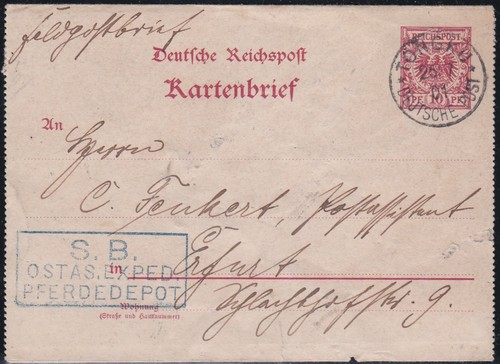 Feldpostbrief
Deutsche Reichspost
Kartenbrief
REICHSPOST
10 PF
DEUTSCHE POST
25
01
An
Herrn
C. Fenkert, Postassistent
S. B.
OSTAS. EXPED.
PFERDEDEPOT
in
Erfurt
Wohnung
(Straße und Hausnummer)
Schlachthofstr. 9.